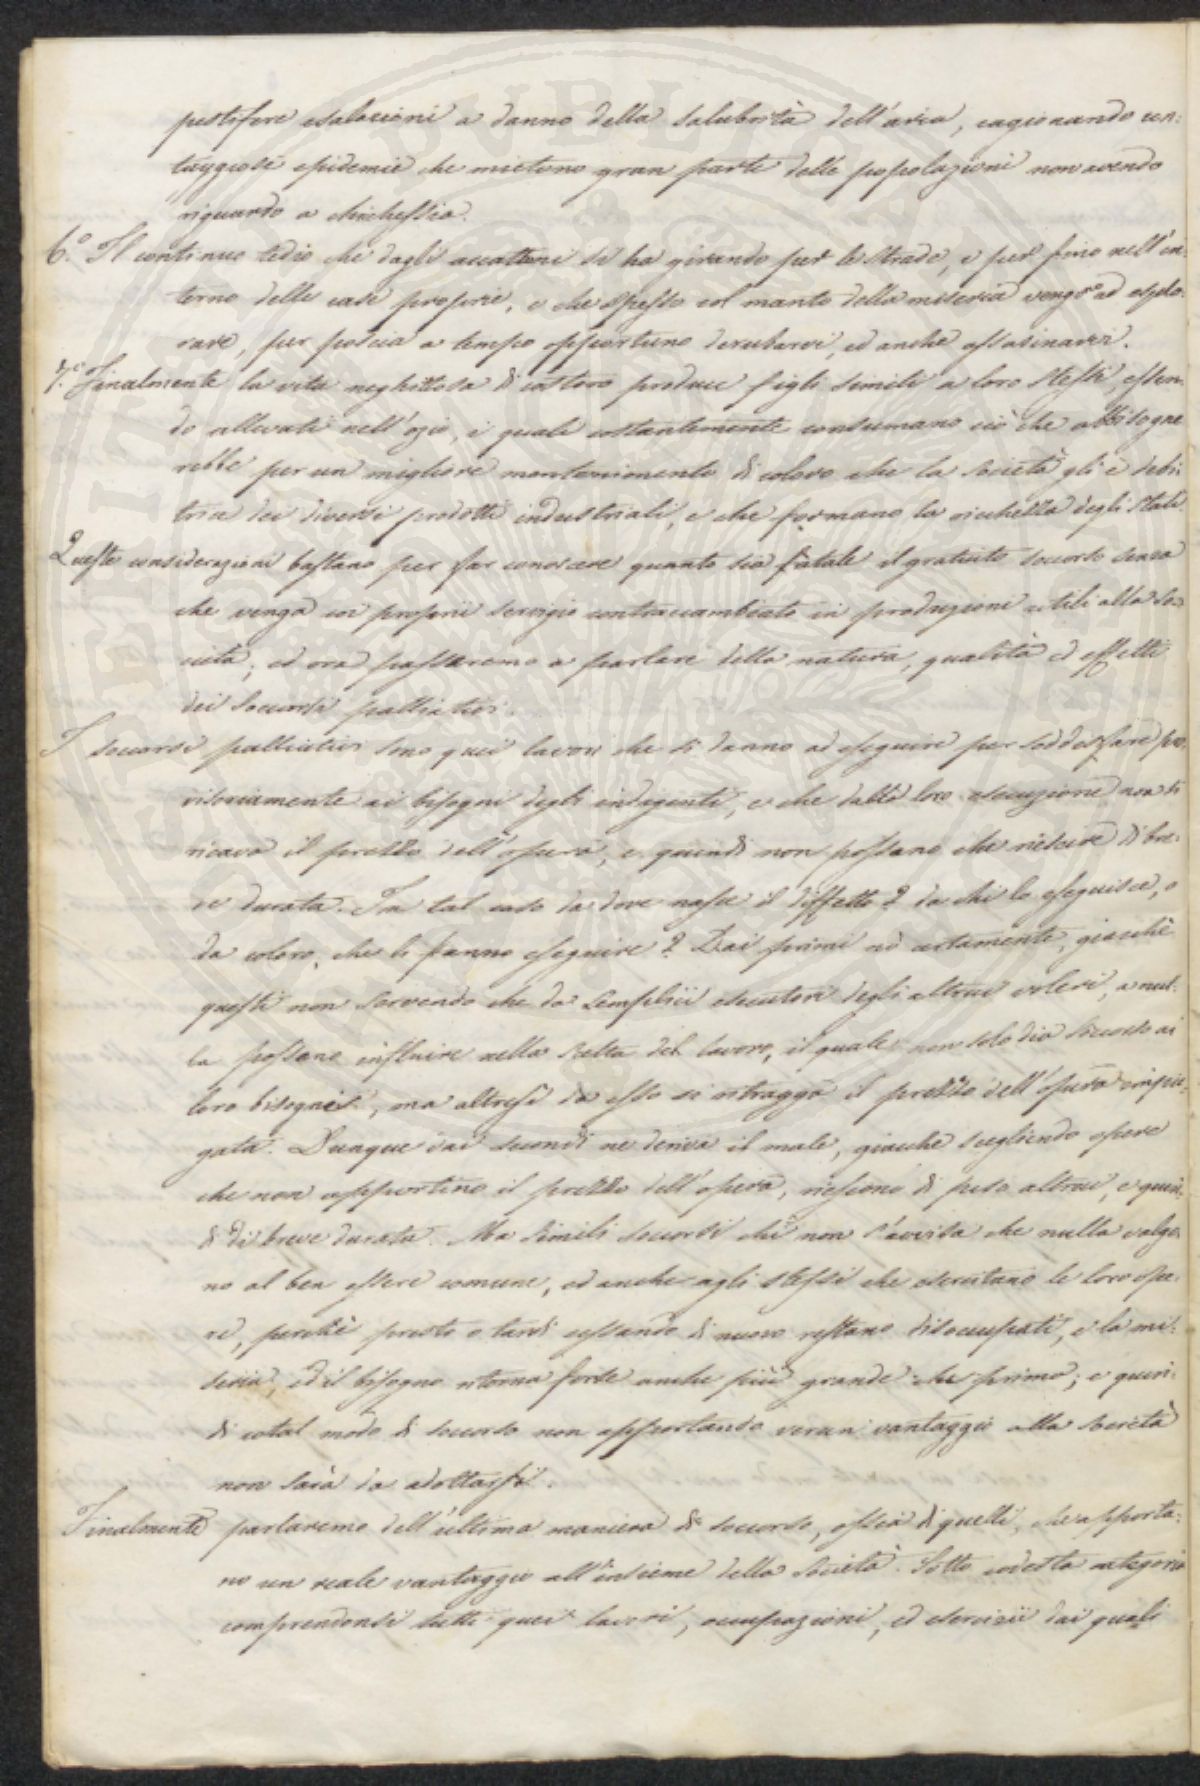 pestifere esalazioni a danno della salubrità dell'aria, cagionando con:
taggiose epidemie che mietono gran parte delle popolazioni non avendo
riguardo a chichessia.
6.° Il continuo tedio che dagli accattoni si ha girando per le strade, e per fino nell'in:
terno delle case proprie, e che spesso col manto della miseria vengo.° ad esplo:
rare, per poscia a tempo opportuno derubarvi, ed anche assasinarvi.
7.° Finalmente la vita neghittosa di costoro produce figli simili a loro stessi, essen:
do allevati nell'ozio, i quali costantemente consumano ciò che abbisogne
rebbe per un migliore mantenimento di coloro che la società gli è debi:
trice dei diversi prodotti industriali, e che formano la richezza degli Stati.
Queste considerazioni bastano per far conoscere quanto sia fatale il gratuito soccorso senza
che venga coi proprii servigii contraccambiato in produzioni utili alla so:
cietà; ed ora passeremo a parlare della natura, qualità ed effetti
dei Soccorsi palliativi.
I soccorsi palliativi sono quei lavori che si danno ad eseguire per soddisfare prov
visoriamente ai bisogni degli indigenti, e che dalla loro esecuzione non si
ricava il prezzo dell'opera, e quindi non possano che riescire di bre:
ve durata. In tal caso da dove nasce il diffetto? da chi lo eseguisce, o
da coloro, che li fanno eseguire? Dai primi nò certamente, giacchè
questi non servendo che da semplici esecutori degli altrui voleri, a nul:
la possono influire nella scelta del lavoro, il quale non solo dia soccorso ai
loro bisogni, ma altresì da esso si ritragga il prezzo dell'opera impie:
gata. Dunque dai secondi ne deriva il male, giacchè scegliendo opere
che non apportino il prezzo dell'opera, riescono di peso altrui, e quin:
di di breve durata. Ma simili soccorsi chi non s'avvisa che nulla valgo:
no al ben essere comune, ed anche agli stessi che esercitano le loro ope:
re, perchè presto o tardi cessando di nuovo restano disoccupati, e la mi:
seria, ed il bisogno ritorna forse anche più grande che prima; e quin:
di cotal modo di soccorso non apportando verun vantaggio alla società
non sarà da adottarsi.
Finalmente parlaremo dell'ultima maniera di soccorso, ossia di quelli, che apporta:
no un reale vantaggio all'insieme della Società. Sotto codesta categoria
comprendonsi tutti quei lavori, occupazioni, ed esercizii dai quali